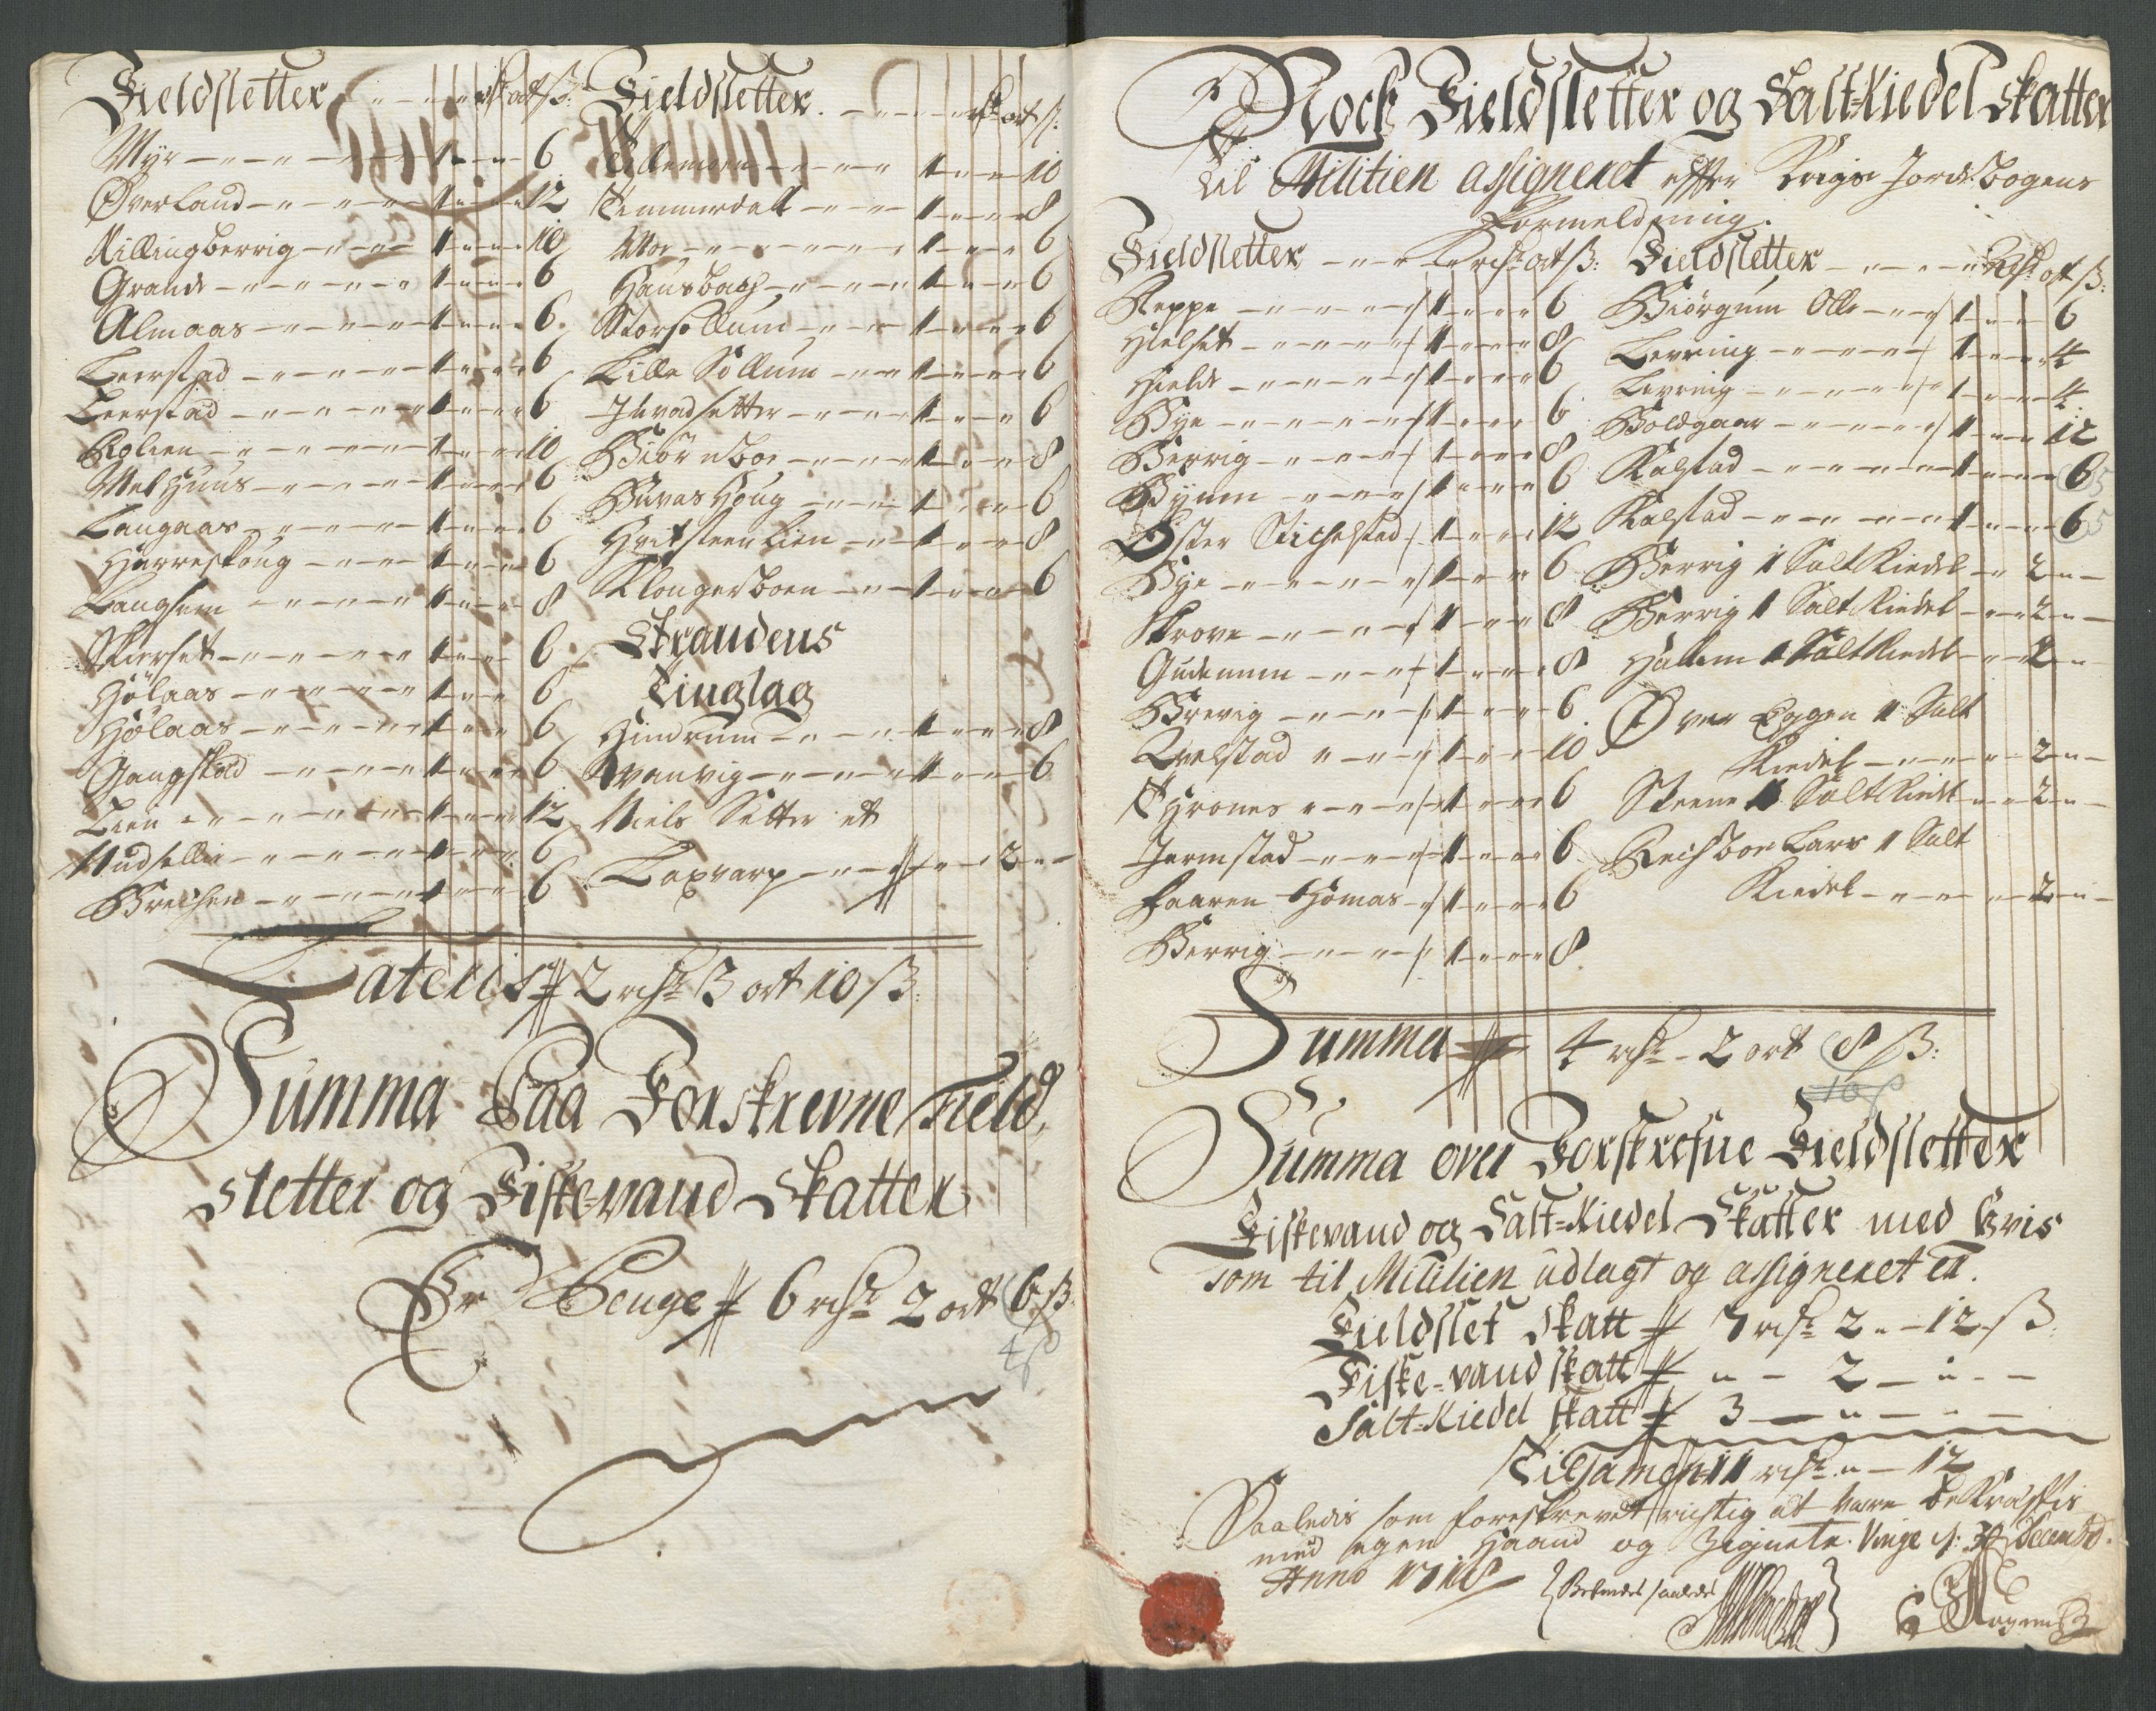 Fieldsletter - rdr ort ß:
Myr 1 6
Øverland 1 12
Killingberrig 1 10
Grande 1 6
Almaas 1 6
Leerstad 1 6
Leerstad 1 6
Rolien 1 10
Melhuus 1 6
Langaas 1 6
Harreskoug 1 6
Langhem 1 8
Skierset 1 6
Hølaas 1 6
Hølaas 1 6
Gangstad 1 6
Lien 1 12
Mudsellie 1 6
Breehen 1 6
Fieldsletter - rdr ort ß:
1 10
Temmerdall 1 8
Moe 1 6
Hausbach 1 6
Storsøllum 1 6
Lille Søllum 1 6
Juvadsetter 1 6
Biørnboe 1 8
Buvashoug 1 6
Hvitsteen Lien 1 8
Klongerboen 1 6
Strandens
Tinglag
Hindrum 1 8
Qvanvig 1 6
Niels Setter et
Laxvarp 2
Lateris 2 rdr 3 ort 10 ß:
Summa Paa Forskrevne Field
sletter og Fiskevand Skatter
Er Penge 6 rdr 2 ort 6 ß
4 ß
Nock Fieldsletter og Salt=Kiedel Skatter
til Militien assigneret efter Krigs Jordebogens
Formeldning.
Fieldsletter rdr ort ß:
Reppe 1 6
Hielset 1 8
Hielde 1 6
Bye 1 6
Berrig 1 8
Bynnen 1 6
Øster Stichelstad 1 12
Bye 1 6
Skrove 1 8
Gudemum 1 8
Brevig 1 6
Qvelstad 1 10
Thrones 1 6
Jermstad 1 6
Faaren Thomas 1 6
Berrig 1 8
Fieldsletter rdr ort ß:
Biørgum Olle 1 6
Levring 1 4
Levring 1 4
Boldgaar 1 12
Kalstad 1 6 5
Kalstad 1 6 5
Berrig 1 Salt Kiedel 2
Berrig 1 Salt Kiedel 2
Hallem 1 Salt Kiedel 2
Over Eggen 1 Salt
Kiedel 2
Steene 1 Salt Kiedel 2
Reisboe Lars 1 Salt
Kiedel 2
Summa 4 rdr - 2 ort 8 ß:
10 ß
Summa over Forskrefne Fieldsletter
Fiskevand og Salt=Kiedel Skatter med hvis
som til Militien udlagt og assigneret er.
Fieldslet Skatt 7 rdr 2 - 12 ß
Fiske=vand skatt 2
Salt=Kiedel skatt 3
Tilsamen 11 rdr - 12
Saaledis som foreskrevet rigtig at være bekræftis
med egen Haand og Zignete. Vinge d: 31 Decembr.
Anno 1718
Befindes saaledes